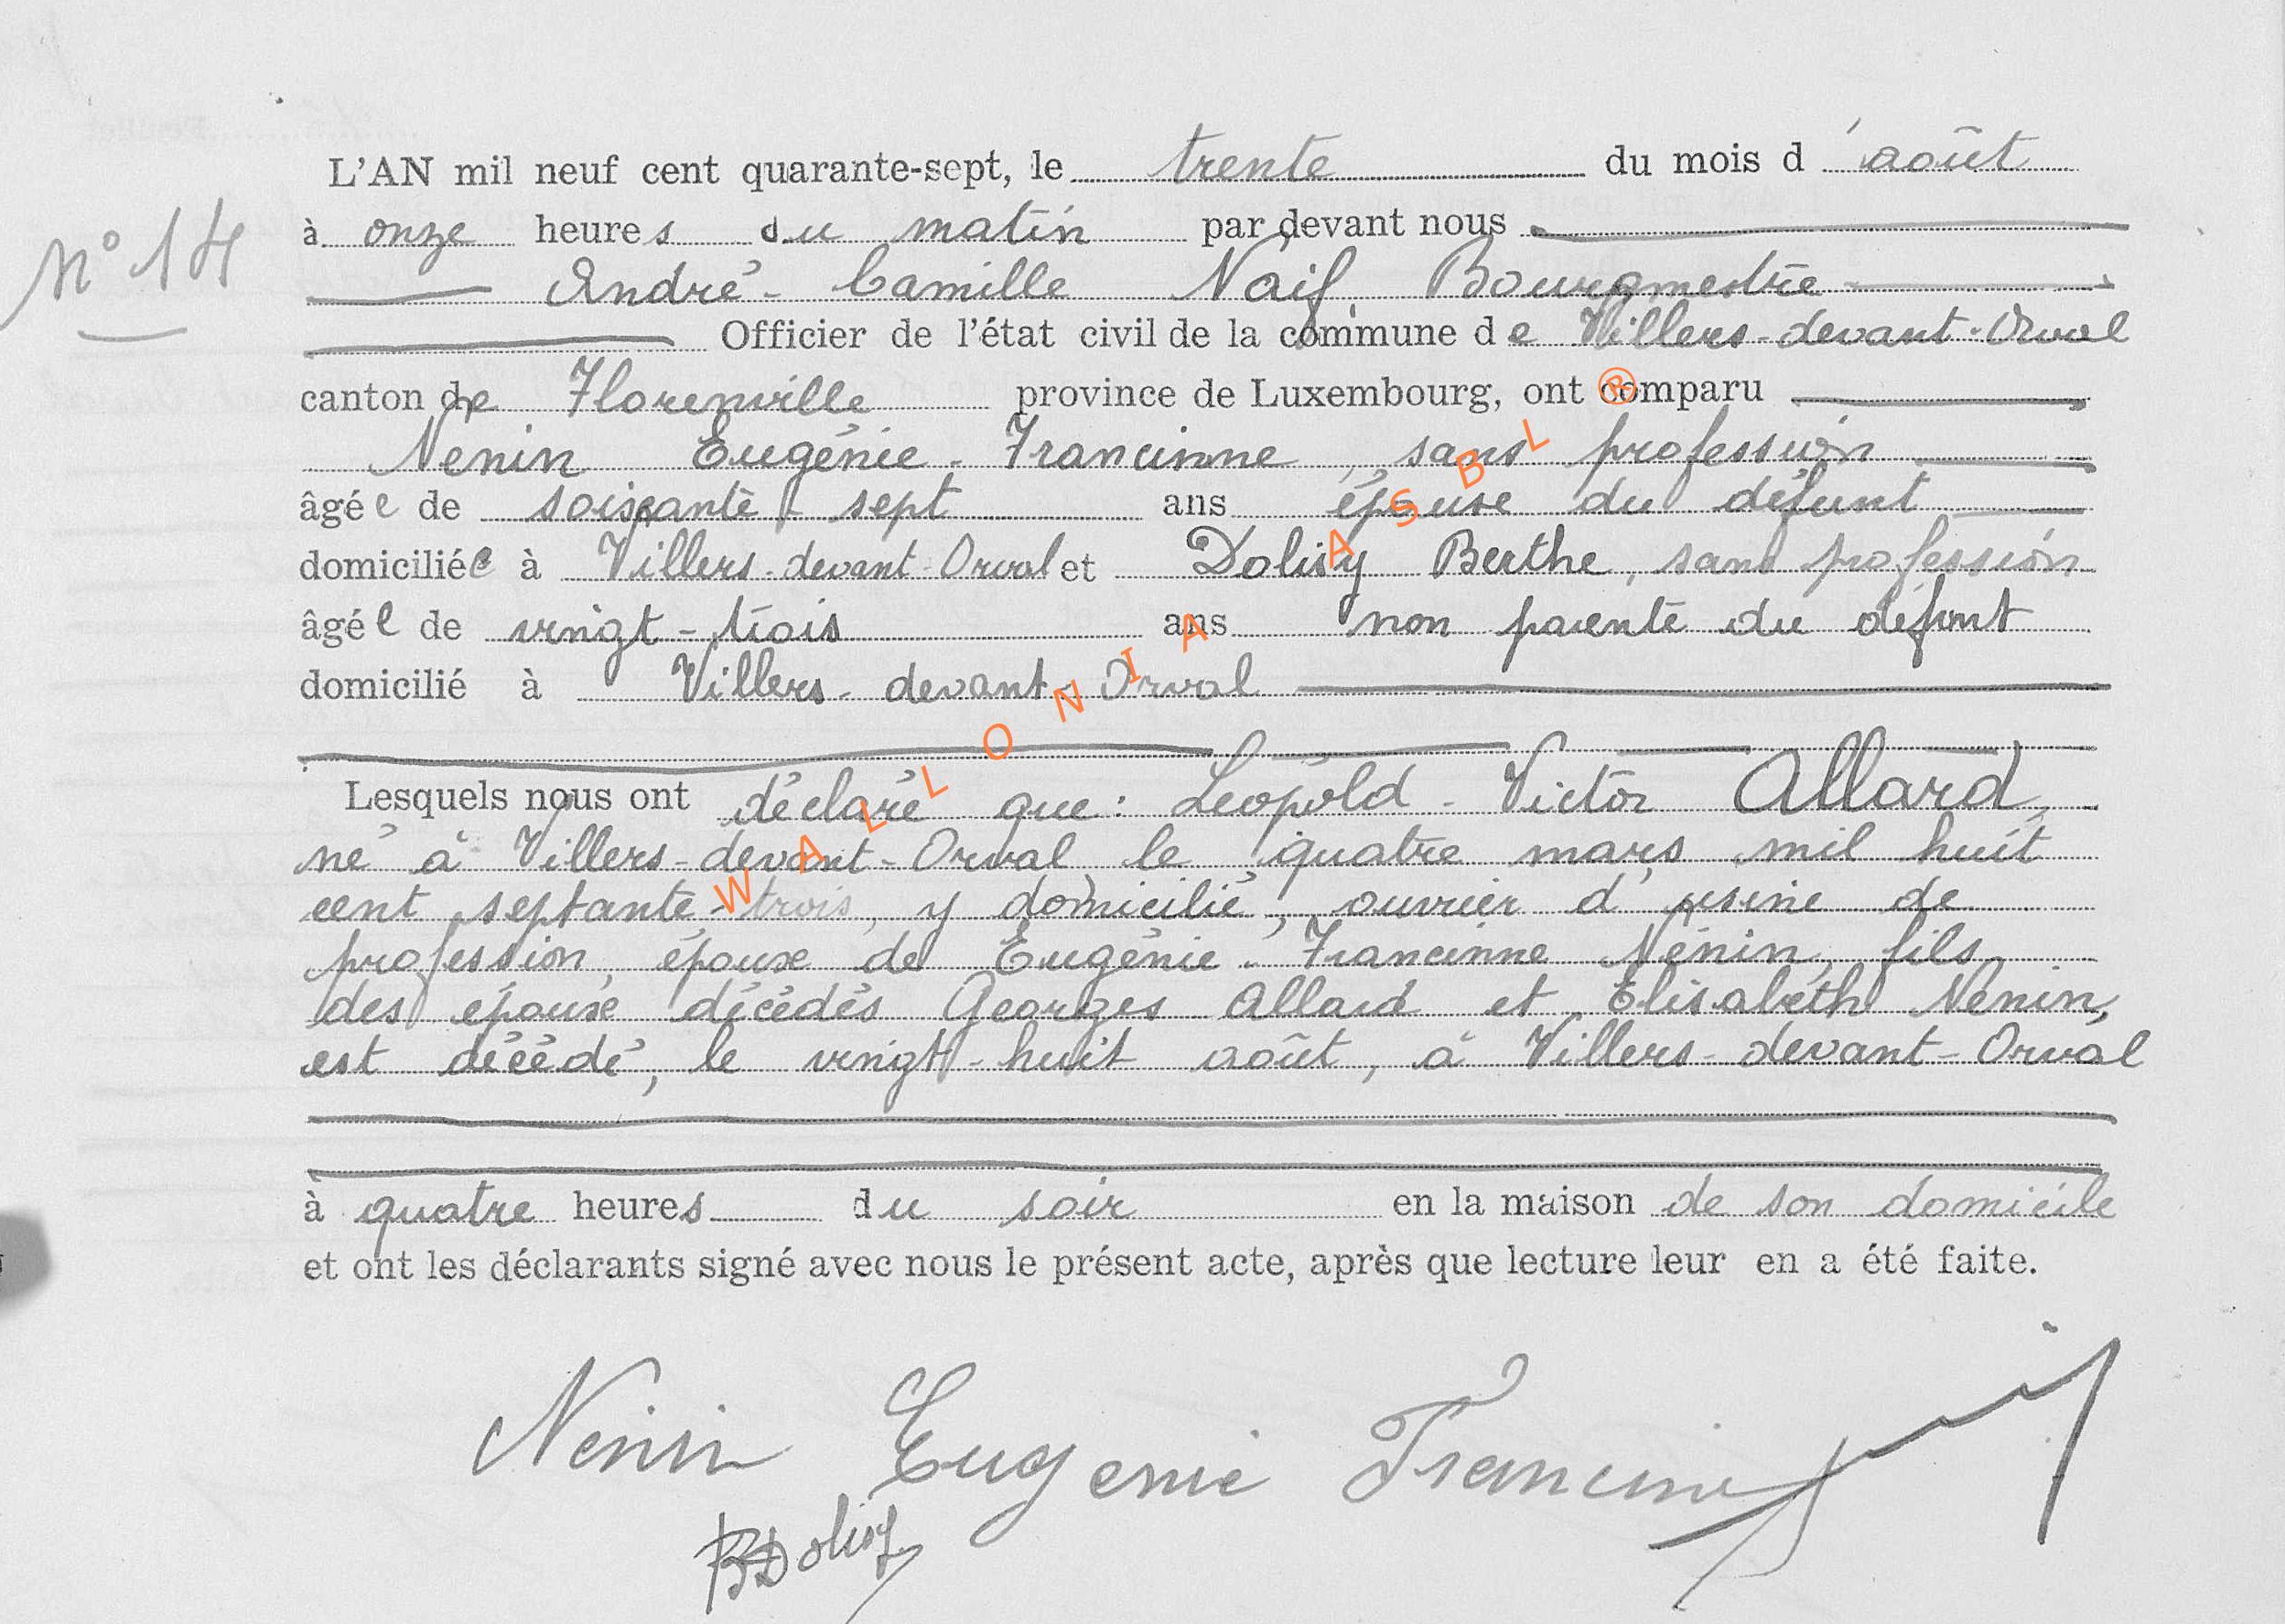 L'AN mil neuf cent quarante-sept, le trente du mois d'août
N° 14
à onze heures du matin par devant nous
André-Camille Naif, Bourgmestre
Officier de l'état civil de la commune de Villers-devant-Orval
canton de Florenville province de Luxembourg, ont comparu
Nenin Eugénie-Francinne, sans profession
âgée de soixante-sept ans épouse du défunt
domiciliée à Villers-devant-Orval et Dolisy Berthe, sans profession
âgée de vingt-trois ans non parente du défunt
domicilié à Villers-devant-Orval
Lesquels nous ont déclaré que: Léopold-Victor Allard,
né à Villers-devant-Orval le quatre mars mil huit
cent septante-trois, y domicilié, ouvrier d'usine de
profession, époux de Eugénie-Francinne Nénin, fils
des époux décédés Georges Allard et Elisabeth Nenin,
est décédé, le vingt-huit août, à Villers-devant-Orval
à quatre heures du soir en la maison de son domicile
et ont les déclarants signé avec nous le présent acte, après que lecture leur en a été faite.
Nenin Eugenie Francine
B Dolisy
WALLONIA ASBL ®